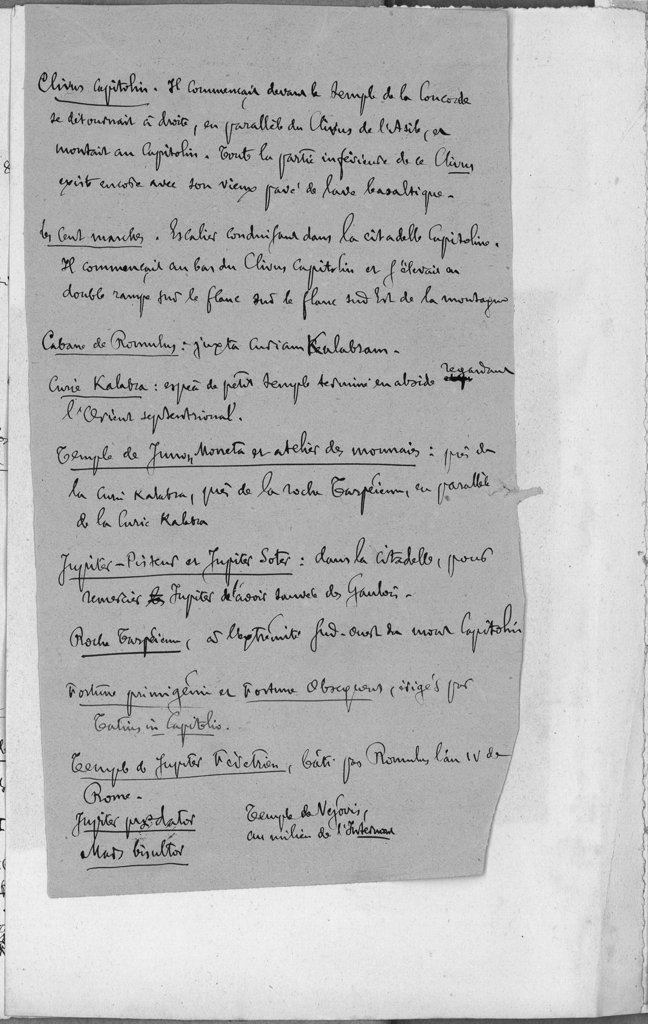 Clivus Capitolin. Il commençait devant le temple de la Concorde
se détournait à droite, en parallèle du Clivus de l'Asile, et
montait au Capitolin. Toute la partie inférieure de ce Clivus
existe encore avec son vieux pavé de lave basaltique.
les Cent marches. Escalier conduisant dans la citadelle Capitoline.
Il commençait au bas du Clivus Capitolin et s'élevait en
double rampe sur le flanc sud le flanc sud Est de la montagne
Cabane de Romulus : juxta Curiam Kalabram.
Curie Kalabra : espèce de petit temple terminé en abside regardant
l'Orient septentrional.
Temple de Junon Moneta et atelier des monnaies : près de
la Curie Kalabra, près de la roche Tarpéienne, en parallèle
de la Curie Kalabra
Jupiter-Pisteur et Jupiter Soter : dans la citadelle, pour
remercier Jupiter de l'avoir sauvée des Gaulois.
Roche Tarpéienne, à l'extrémité Sud-Ouest du mont Capitolin
Fortune primigénie et Fortune Obsequens, érigés par
Tatius in Capitolio.
Temple de Jupiter Férétrien, bâti par Romulus l'an IV de
Rome.
Jupiter prædator
Mars bisultor
Temple de Vejovis,
au milieu de l'Intermont